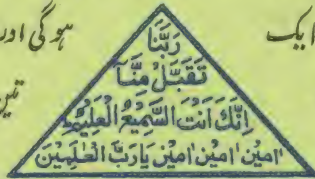 ہوگی اور ایک
رَبَّنَا
تَقَبَّلْ مِنَّا
اِنَّكَ اَنْتَ السَّمِيْعُ الْعَلِيْمُ
اٰمِيْن اٰمِيْن اٰمِيْن يَارَبَّ الْعٰلَمِيْنَ